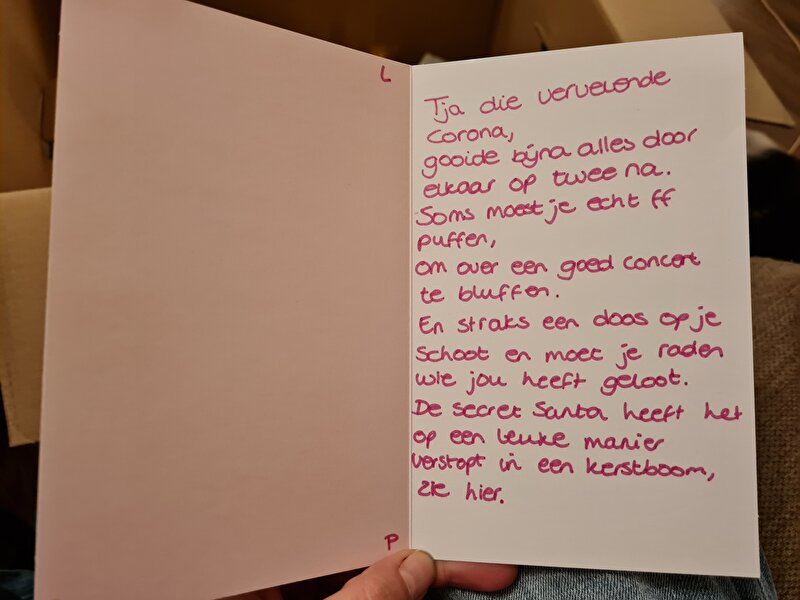 L
Tja die vervelende
Corona,
gooide bijna alles door
elkaar op twee na.
Soms moest je echt ff
puffen,
om over een goed concert
te bluffen.
En straks een doos op je
schoot en moet je raden
wie jou heeft geloot.
De secret Santa heeft het
op een leuke manier
verstopt in een kerstboom,
zie hier.
P